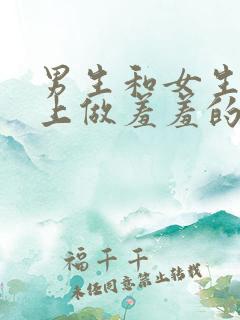 男生和女生
上做羞羞的
福千千
未经同意禁止转载